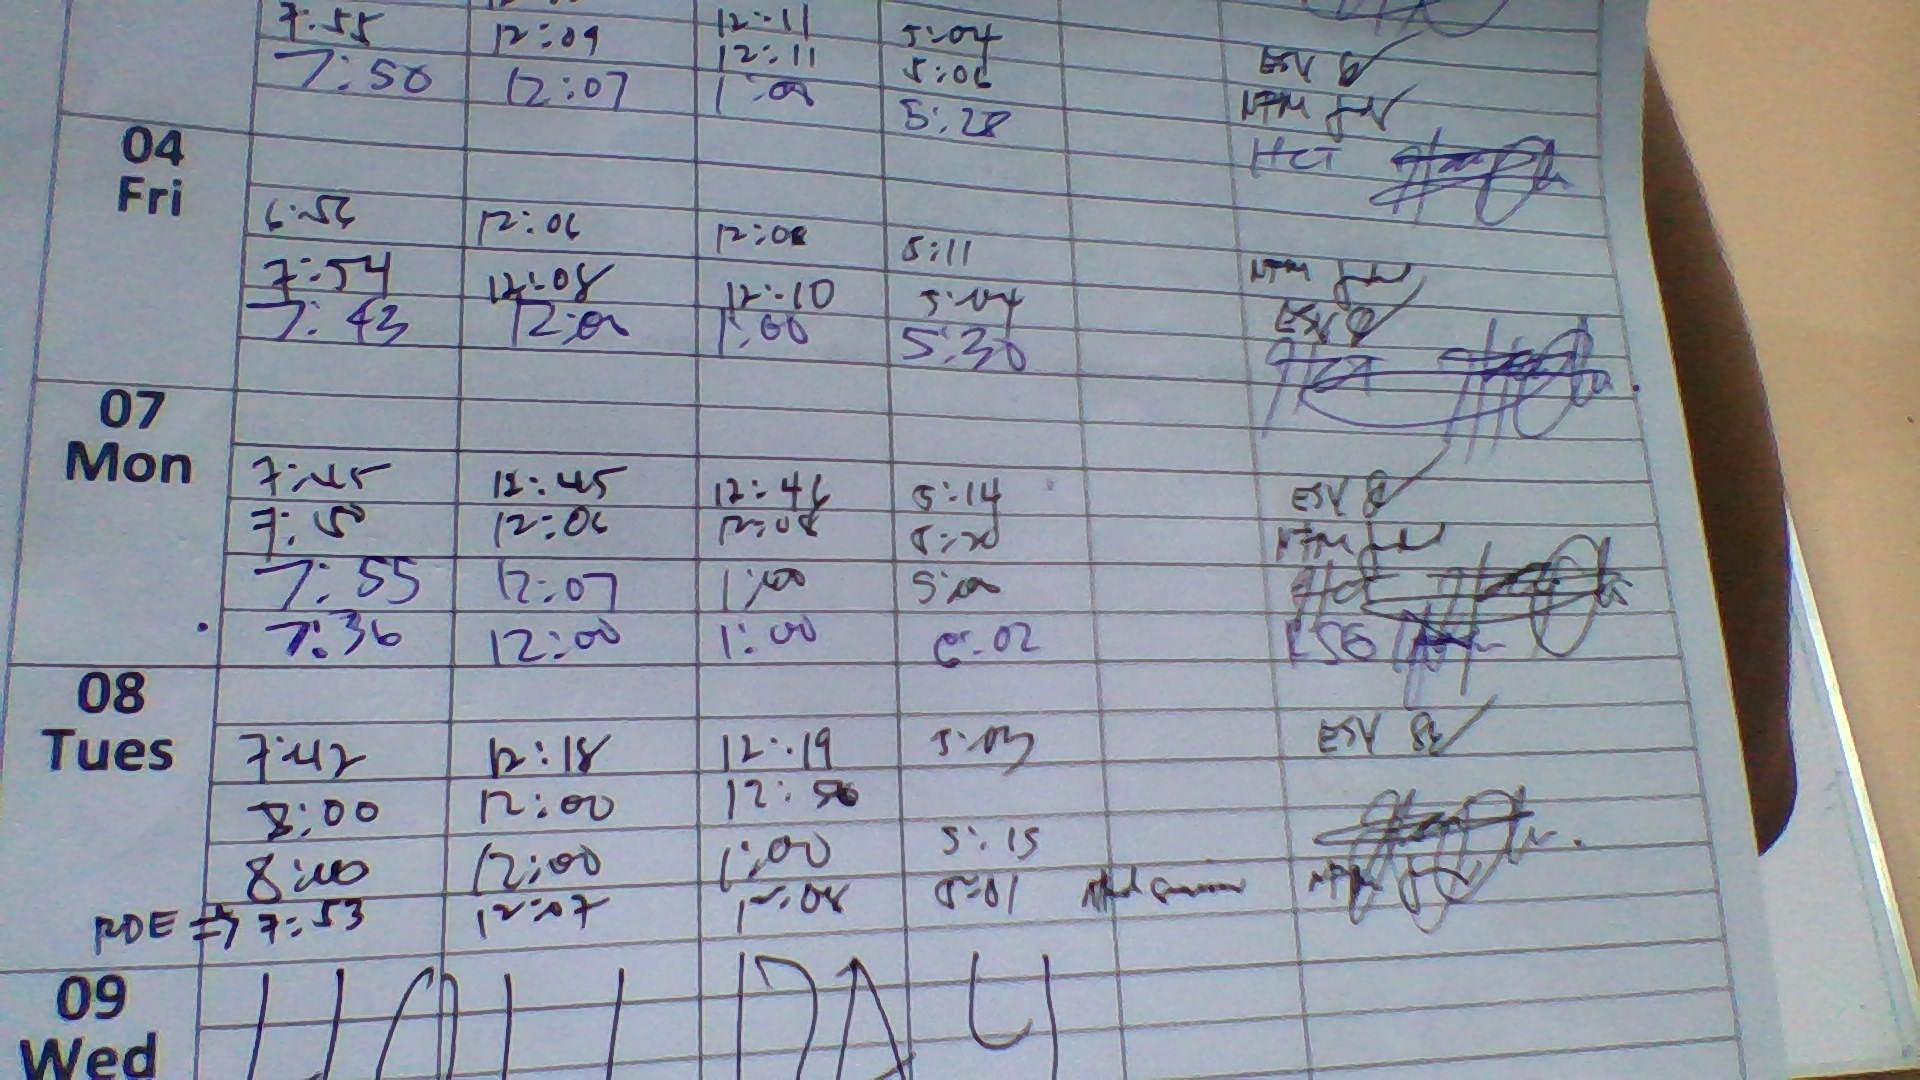 7:55 12:09 12:11 5:04 ESV
7:50 12:07 12:11 5:06 NFM
1:00 5:28 HCT
04
Fri
6:56 12:06 12:08 5:11 NFM
7:54 12:08 12:10 5:04 ESV
7:43 12:00 1:00 5:30 HCT
07
Mon
7:45 12:45 12:46 5:14 ESV
7:50 12:06 12:08 5:20 NFM
7:55 12:07 1:00 5:00 HCT
7:36 12:00 1:00 6:02 LSG
08
Tues
7:42 12:18 12:19 5:03 ESV
8:00 12:00 12:56
8:00 12:00 1:00 5:15
7:53 12:07 12:08 5:01 NFM
09
Wed
HOLIDAY